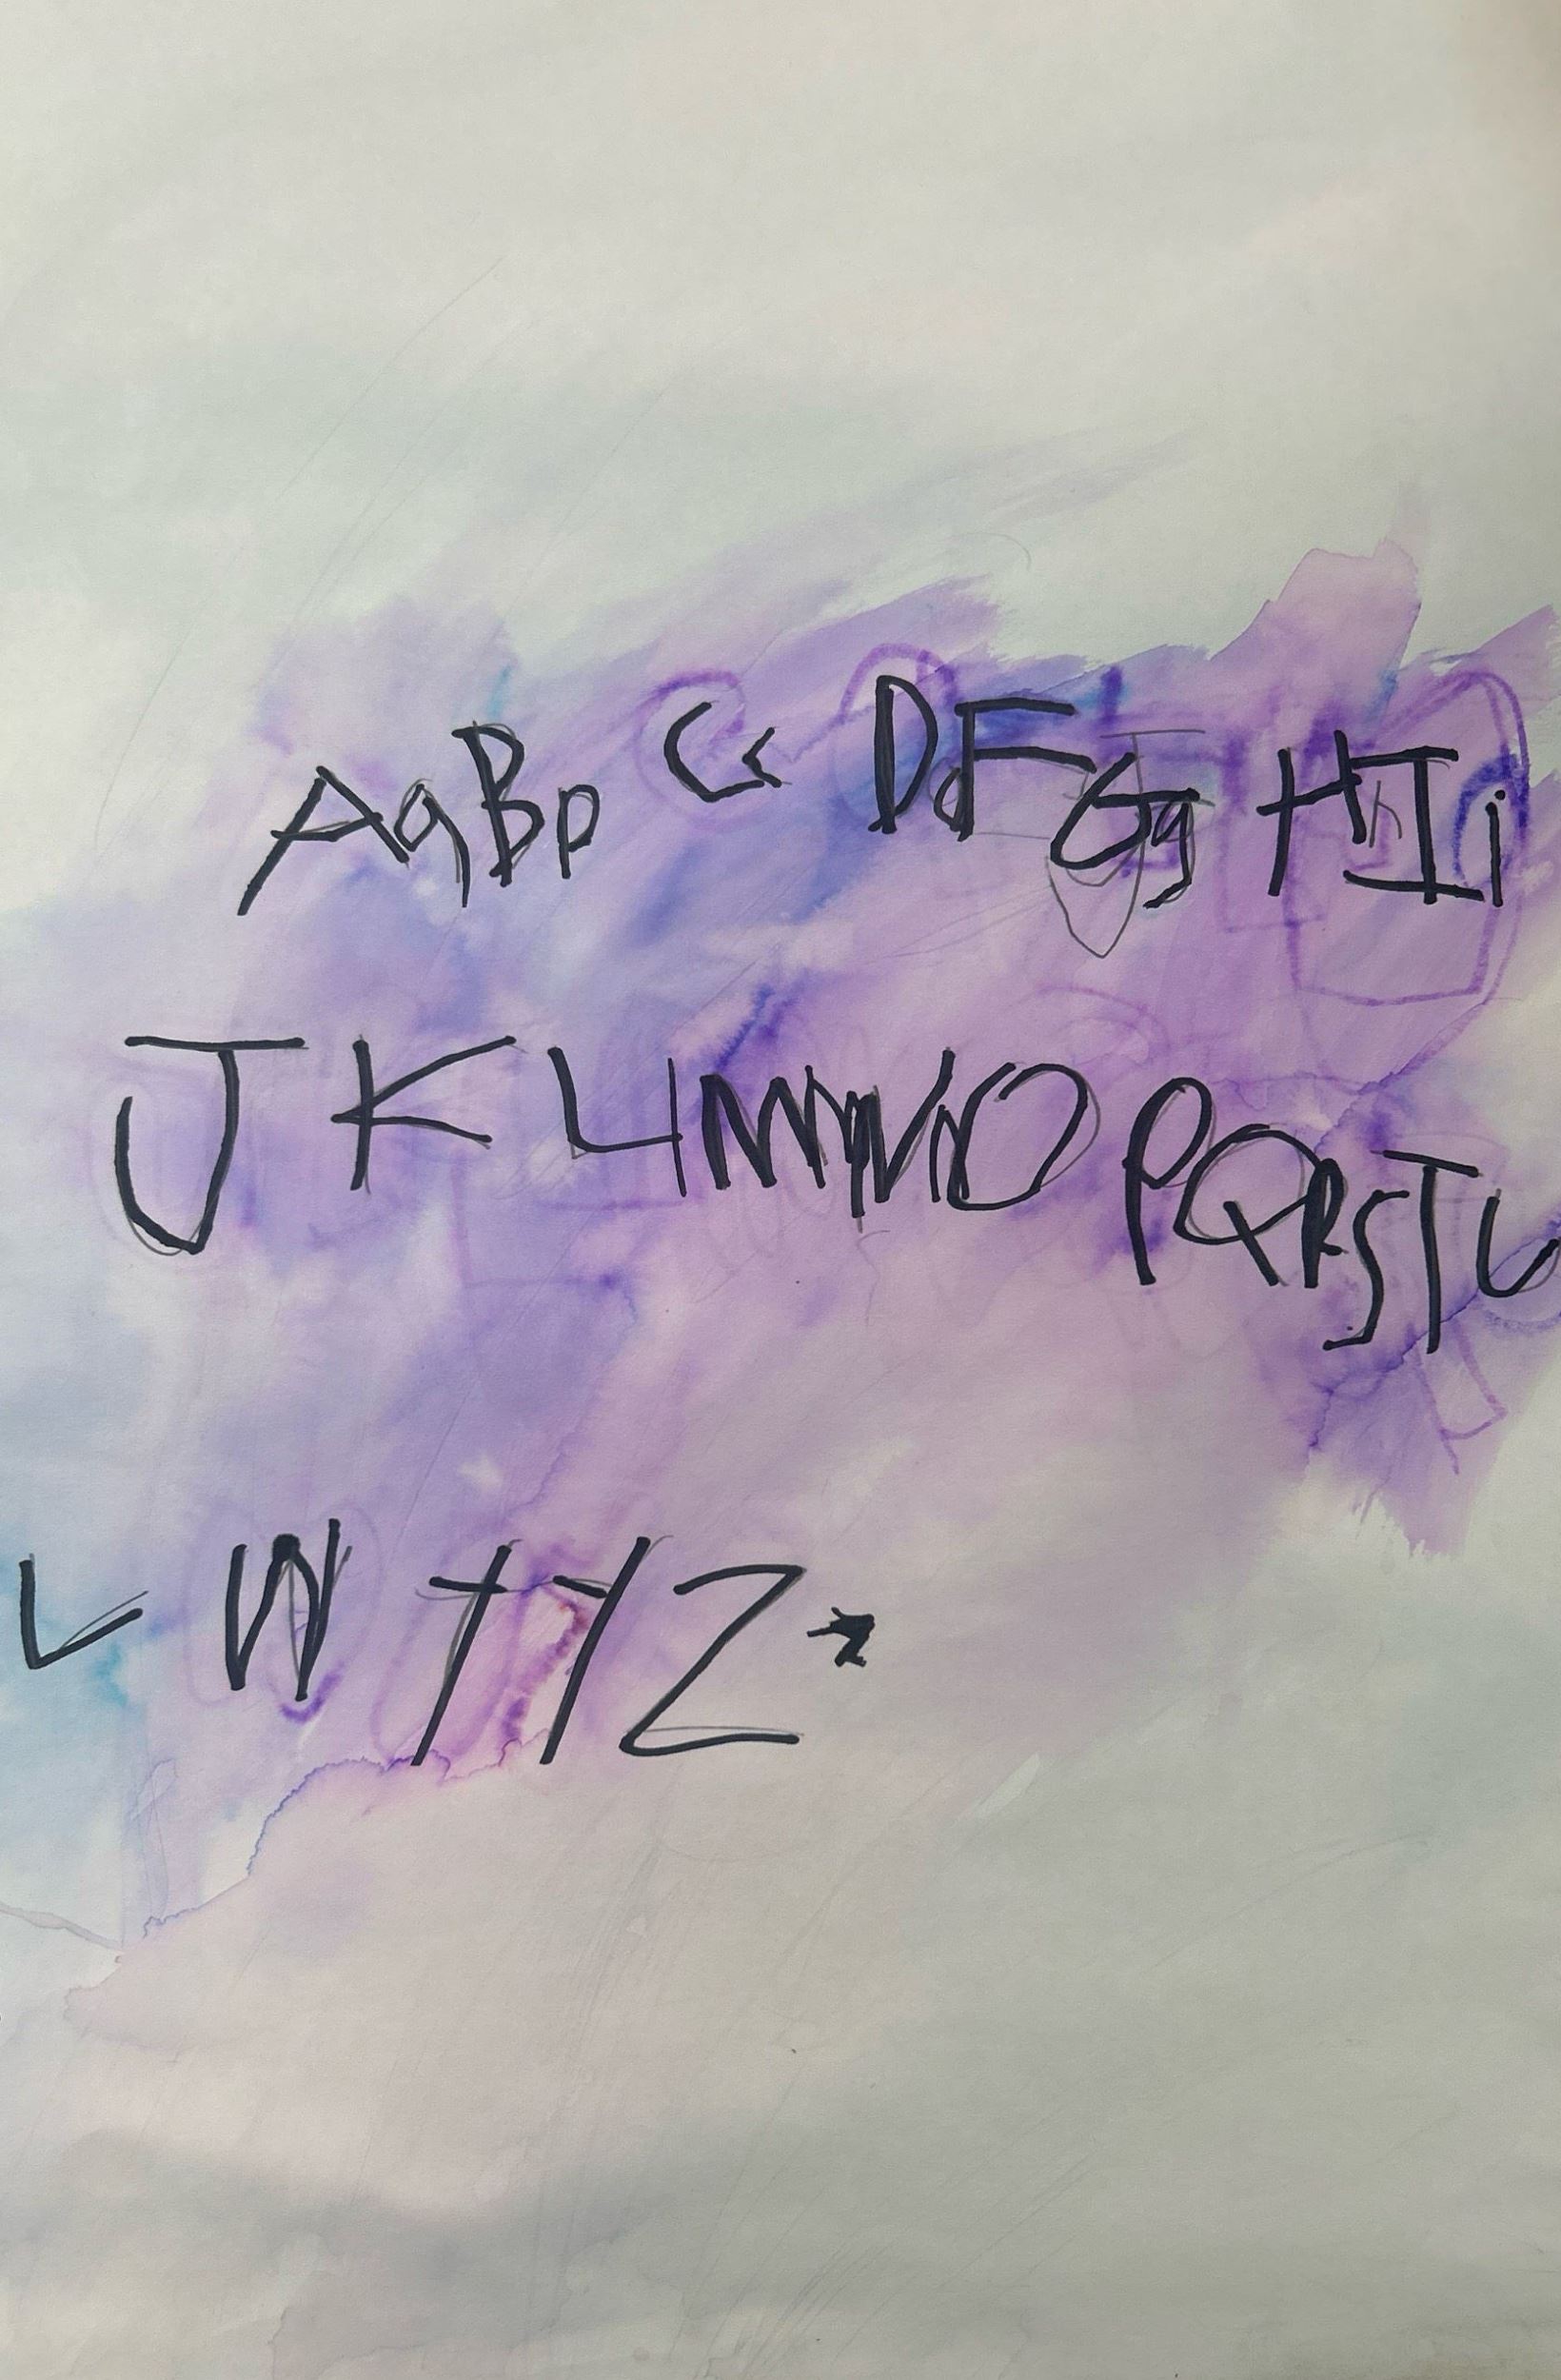 Aa Bb Cc Dd F Gg Hh Ii
J K Ll Mm Nn O P Q R S T U
V W X Y Z z